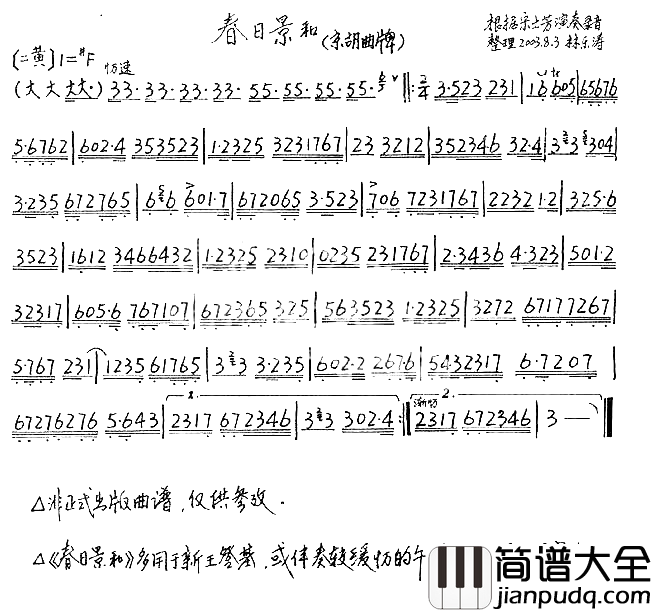 春日景和(京胡曲牌)
根据宗士芳演奏录音
整理 2003.8.3 林东涛
〔二黄〕1=#F
忉速
(大 大 大大· 33· 33· 33· 33· 55· 55· 55· 55· ‖: 2/4 3·523 231 | 16 605 | 65676
5·6762 | 602·4 353523 | 1·2325 3231767 | 23 3212 | 352346 32·4 | 3 3 304 |
3·235 672765 | 6 6 601·7 | 672065 3·523 | 706 7231767 | 2232 1·2 | 325·6
3523 | 1612 3466432 | 1·2325 2310 | 0235 231767 | 2·3436 4·323 | 501·2
32317 | 605·6 767107 | 672365 325 | 563523 1·2325 | 3272 67177267 |
5·767 231 | 1235 61765 | 3 3 3·235 | 602·2 2676 | 5432317 6·7207 |
67276276 5·643 | 2317 672346 | 3 3 302·4 :‖ 2317 672346 | 3 — ‖
1.
渐忉 2.
△非正式出版曲谱,仅供参改.
△《春日景和》多用于新王祭墓,或伴奏较缓忉的
简谱大全
jianpudq.com